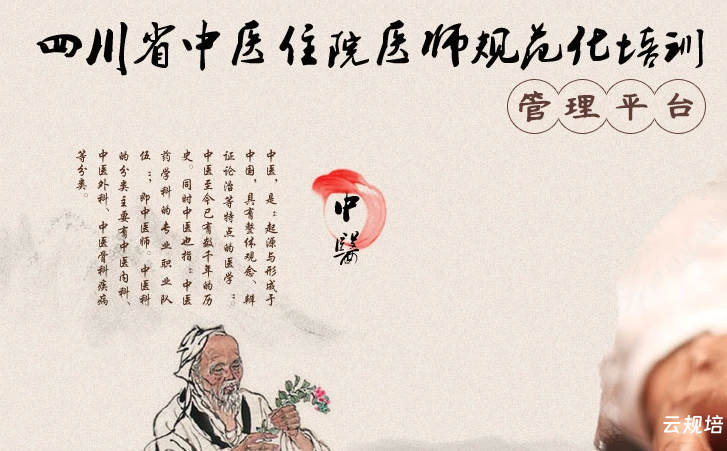 四川省中医住院医师规范化培训
管理平台
中医，是：起源与形成于
中国，具有整体观念、辩
证论治等特点的医学：。
中医至今已有数千年的历
史。同时中医也指：中医
药学科的专业职业队
伍：，即中医师。中医科
的分类主要有中医内科、
中医外科、中医骨科疾病
等分类。
中醫
云规培